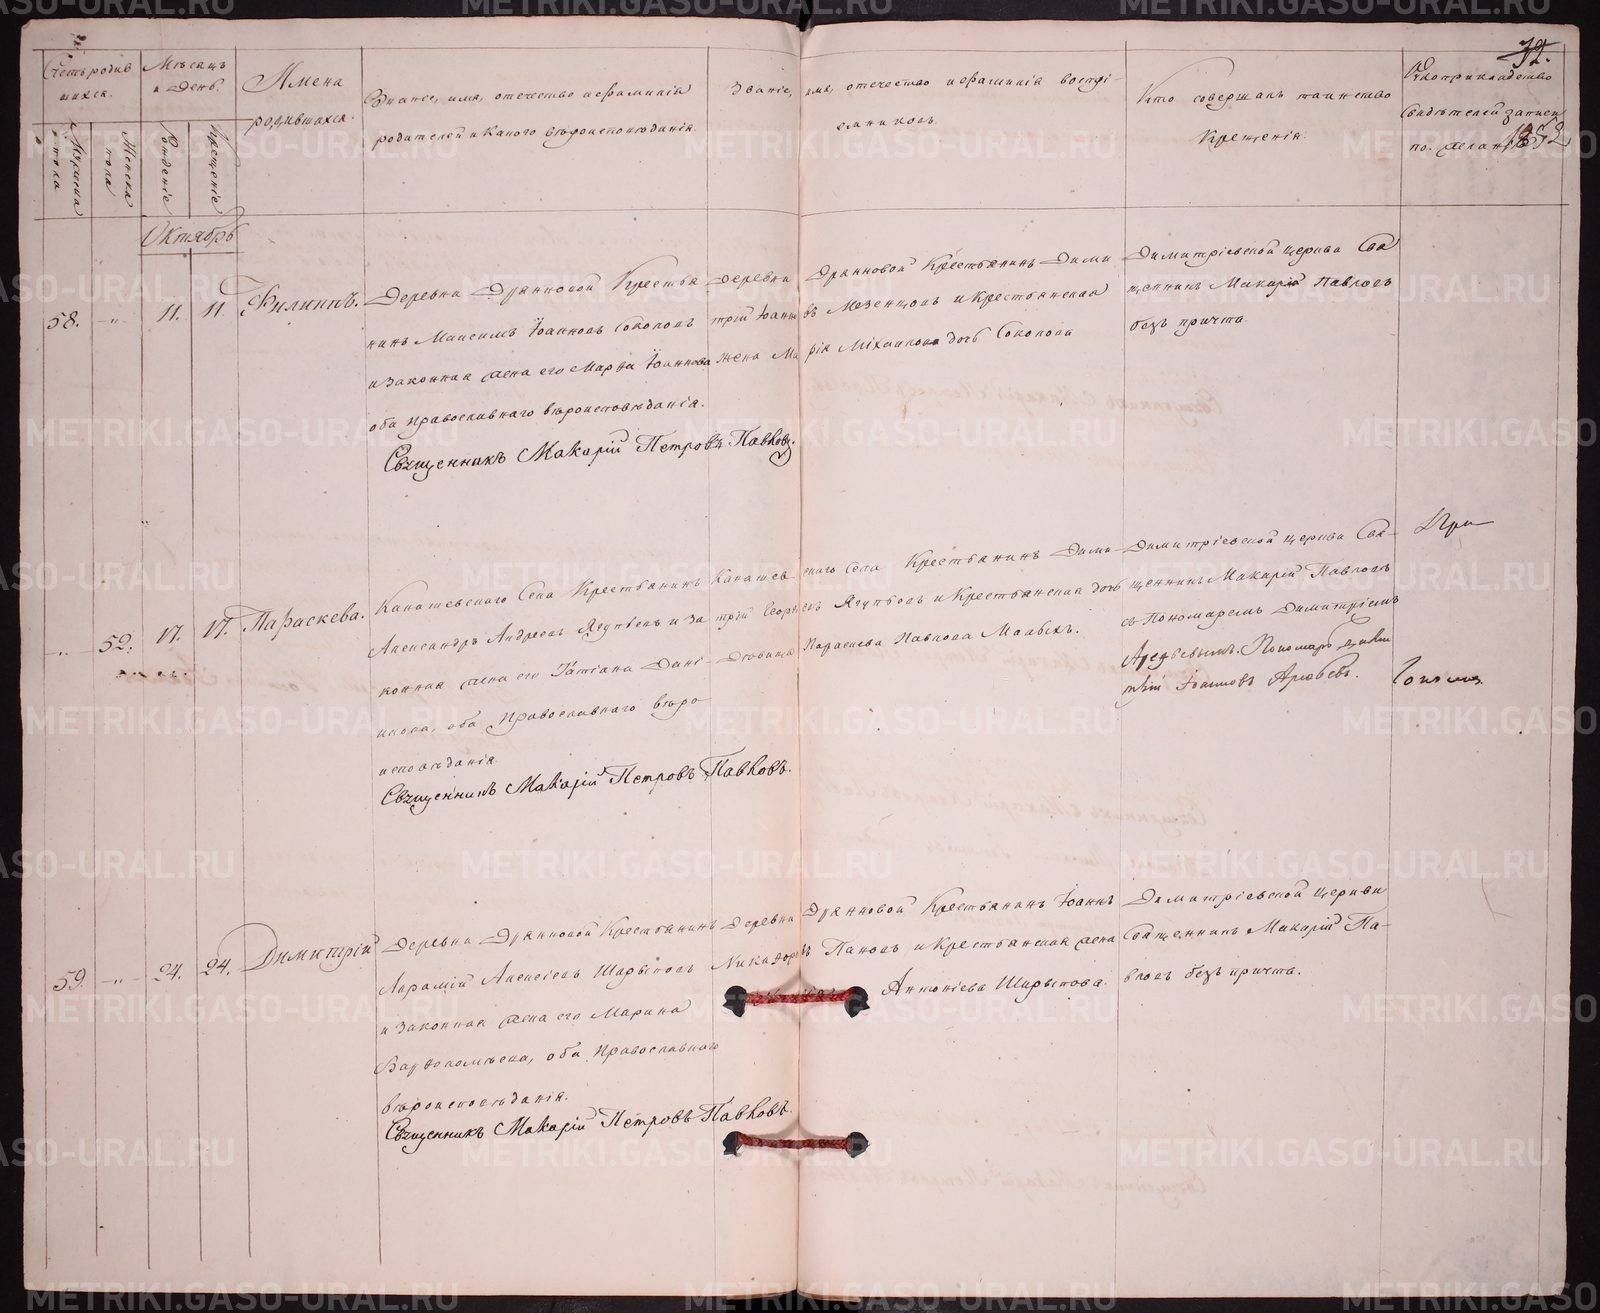 Счетъ родив
шихся.
Мѣсяцъ
и День.
Имена
родившихся.
Званіе, имя, отечество и фамилія
родителей и какого вѣроисповѣданія.
Званіе, имя, отечество и фамилія воспрі-
емниковъ.
Кто совершалъ таинство
Крещенія.
Рукоприкладство
Свидѣтелей записи
по желанію
32.
152
Мужеска
пола
Женска
пола
Рожденіе
Крещеніе
Октябрь
58.
11.
11.
Филиппъ.
Деревни Дранновой Крестья
нинъ Максимъ Іоанновъ Соколовъ
и законная жена его Марѳа Іоаннова
оба православнаго вѣроисповѣданія.
Священникъ Макарій Петровъ Павловъ.
Деревни Дранновой Крестьянинъ Дими
трій Іоанновъ Мезенцовъ и крестьянская
жена Марія Михаилова дочь Соколова
Димитріевской церкви Свя
щенникъ Макарій Павловъ
безъ причта.
52.
17.
17.
Параскева.
Канашевскаго Села Крестьянинъ
Александръ Андреевъ Ягуповъ и за
конная жена его Татіана Дані-
илова, оба Православнаго вѣро
исповѣданія.
Священникъ Макарій Петровъ Павловъ.
Канашевскаго Села Крестьянинъ Дими-
трій Георгіевъ Ягуповъ и Крестьянская дочь
Дѣвица Параскева Павлова
Димитріевской церкви Свя-
щенникъ Макарій Павловъ
съ Пономаремъ Димитріемъ
Арефьевымъ. Пономарь Дими
трій Іоанновъ Арефьевъ.
59.
24.
24.
Димитрій
Деревни Дранновой Крестьянинъ
Аврамій Алексіевъ Шарыповъ
и законная жена его Марина
Варѳоломѣева, оба Православнаго
вѣроисповѣданія.
Священникъ Макарій Петровъ Павловъ.
Деревни Дранновой Крестьянинъ Іоаннъ
Никифоровъ Пановъ и крестьянская жена
Антоніева Шарыпова.
Димитріевской церкви
Священникъ Макарій Па-
вловъ безъ причта.
METRIKI.GASO-URAL.RU